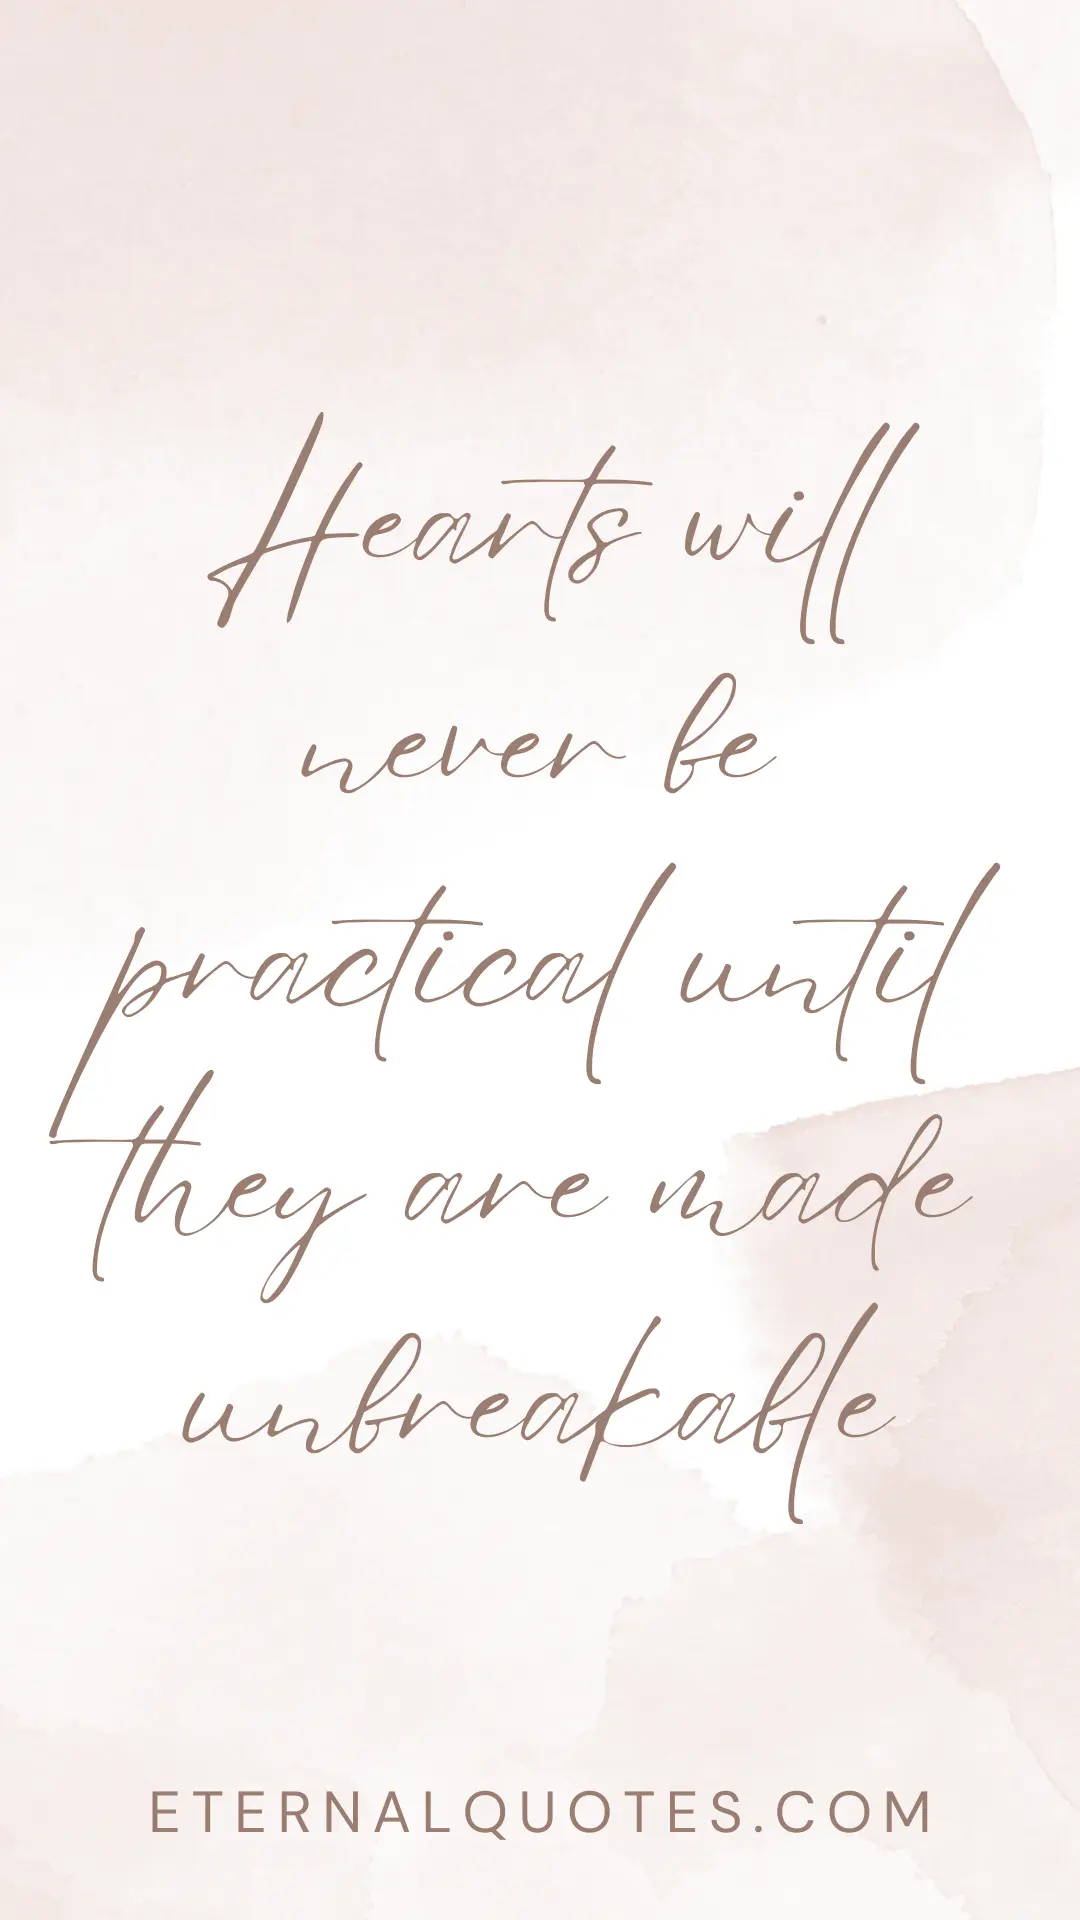 Hearts will
never be
practical until
they are made
unbreakable
ETERNALQUOTES.COM